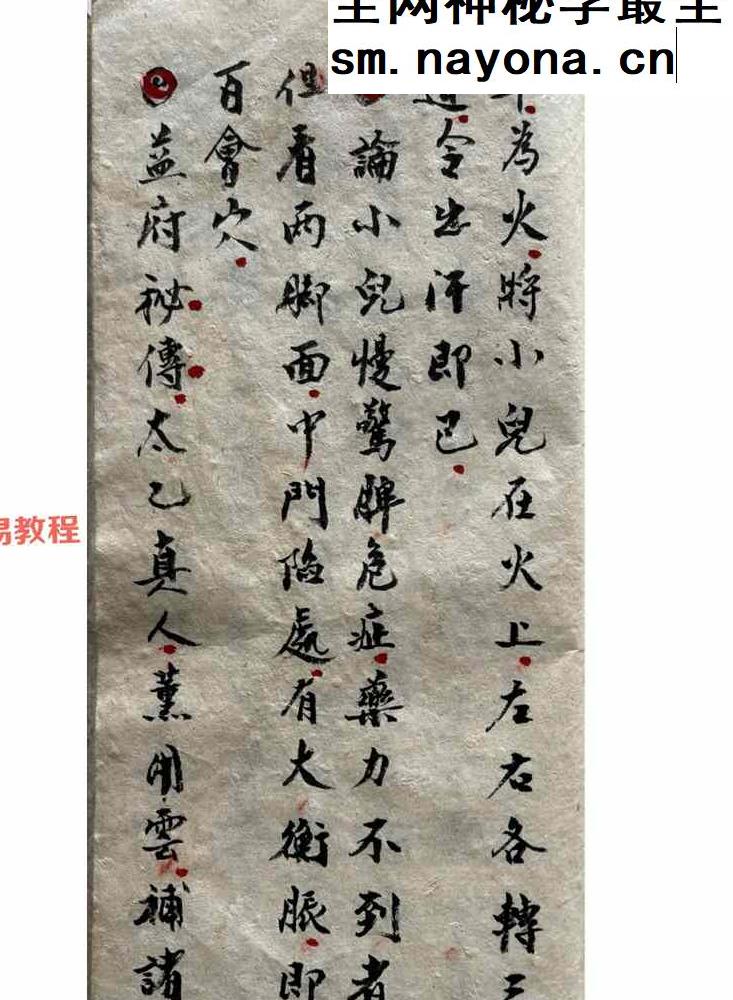 sm.nayona.cn
易教程
為火將小兒在火上左右各轉三
令出汗即已
論小兒慢驚脾危症藥力不列者
但看兩脚面中門陷處有大衝脈即
百會穴
益府祕傳太乙真人薰用雲補諸